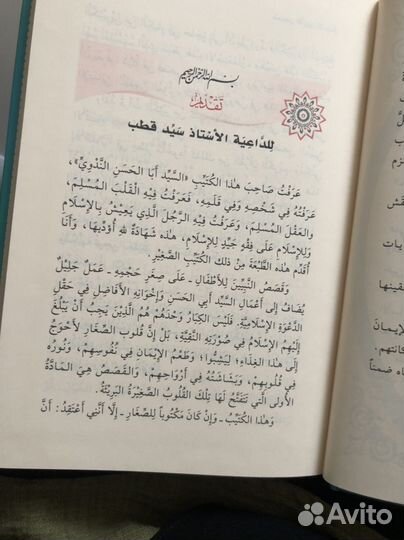 بسم الله الرحمن الرحيم
تقديم
للدَّاعِيَة الأسْتَاذ سَيِّد قطب
عَرَفْتُ صَاحِبَ هَذا الكُتَيِّبِ «السَّيِّد أَبَا الحَسَنِ النَّدْوِيَّ»،
عَرَفْتُهُ فِي شَخْصِهِ وَفِي قَلَمِهِ، فَعَرَفْتُ فِيهِ الْقَلْبَ المُسْلِمَ،
وَالعَقْلَ المُسْلِمَ، وَعَرَفْتُ فِيهِ الرَّجُلَ الَّذِي يَعِيشُ بِالإِسْلَامِ
وَلِلإِسْلَامِ عَلَى فِقْهٍ جَيِّدٍ لِلإِسْلَامِ، هَذِه شَهَادَةٌ لله أُؤَدِّيهَا، وَأَنَا
أُقَدِّمُ هَذِه الطَّبْعَةَ مِنْ ذلِكَ الكُتَيِّبِ الصَّغِيْرِ.
وَقَصَصُ النَّبِيِّينَ لِلأَطْفَالِ ـ عَلَى صِغَرِ حَجْمِهِ ـ عَمَلٌ جَلِيْلٌ
يُضَافُ إِلَى أَعْمَالِ السَّيِّد أَبِي الحَسَنِ وَإِخْوَانِهِ الأَفَاضِلِ فِي حَقْلِ
الدَّعْوَةِ الإِسْلَامِيَّةِ. فَلَيْسَ الكِبَارُ وَحْدَهُمْ هُمُ الَّذِيْنَ يَجِبُ أَنْ يَبْلُغَ
إِلَيْهِمُ الإِسْلَامُ فِي صُوْرَتِهِ النَّقِيَّةِ، بَلْ إِنَّ قُلوبَ الصِّغَارِ لأَحْوَجُ
إِلَى هَذا الغِذَاءِ؛ لِيَشِبُّوا؛ وَطَعْمُ الإِيْمَانِ فِي نُفُوسِهِمْ، وَنُورُه
فِي قُلوبِهِمْ، وَبَشَاشَتُهُ فِي أَرْوَاحِهِمْ، وَالقَصَصُ هِيَ المَادَّةُ
الأولى الَّتِي تَتَفَتَّحُ لَهَا تِلْكَ القُلُوبُ الصَّغِيْرَةُ البَرِيْئَةُ.
وَهَذا الكُتَيِّبُ ـ وَإِنْ كَانَ مَكْتُوباً لِلصِّغَارِ ـ إِلَّا أَنَّنِي أَعْتَقِدُ: أَنَّ
Avito